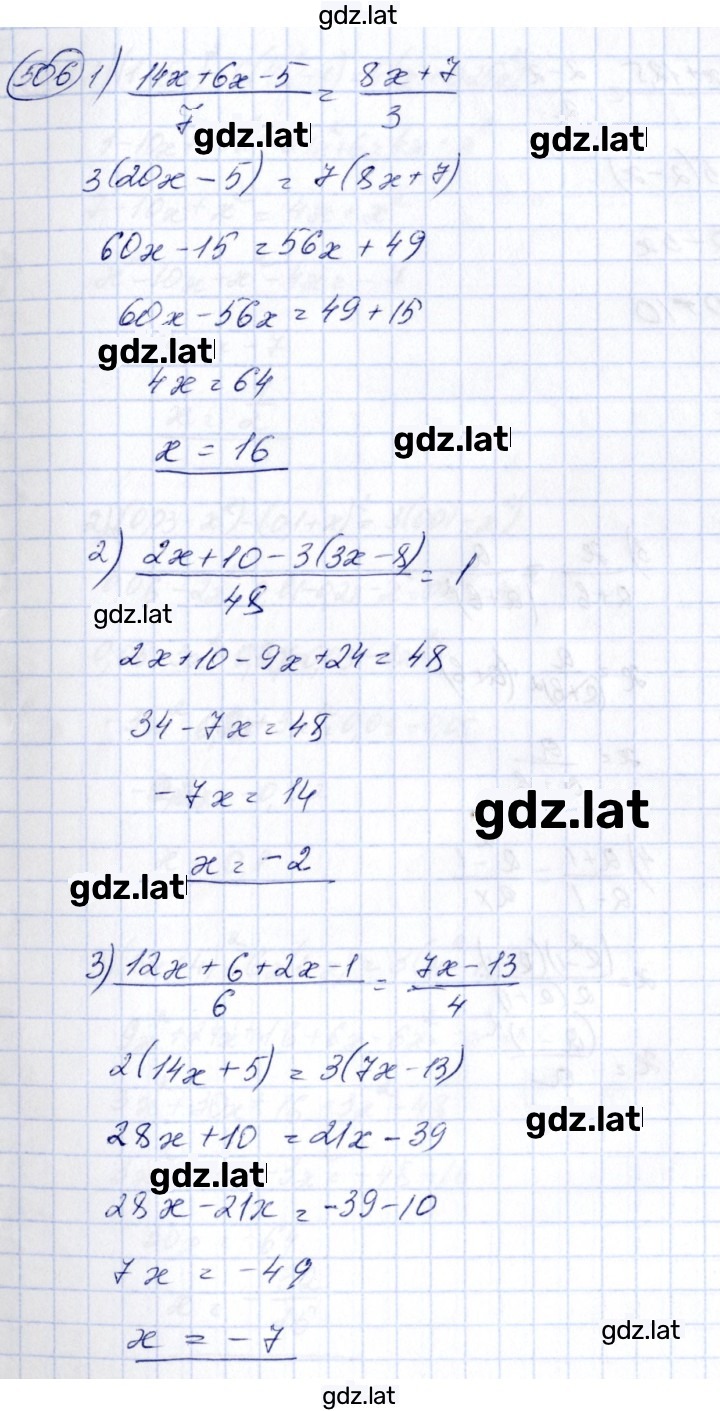 gdz.lat
506 1) (14x+6x-5)/7 = (8x+7)/3
gdz.lat gdz.lat
3(20x-5) = 7(8x+7)
60x-15=56x+49
60x-56x=49+15
gdz.lat
4x=64
gdz.lat
x = 16
2) (2x+10-3(3x-8))/48 = 1
gdz.lat
2x+10-9x+24=48
34-7x=48
-7x=14
gdz.lat
x=-2
gdz.lat
3) (12x+6+2x-1)/6 = (7x-13)/4
2(14x+5) = 3(7x-13)
gdz.lat
28x+10=21x-39
gdz.lat
28x-21x=-39-10
7x = -49
x = -7
gdz.lat
gdz.lat